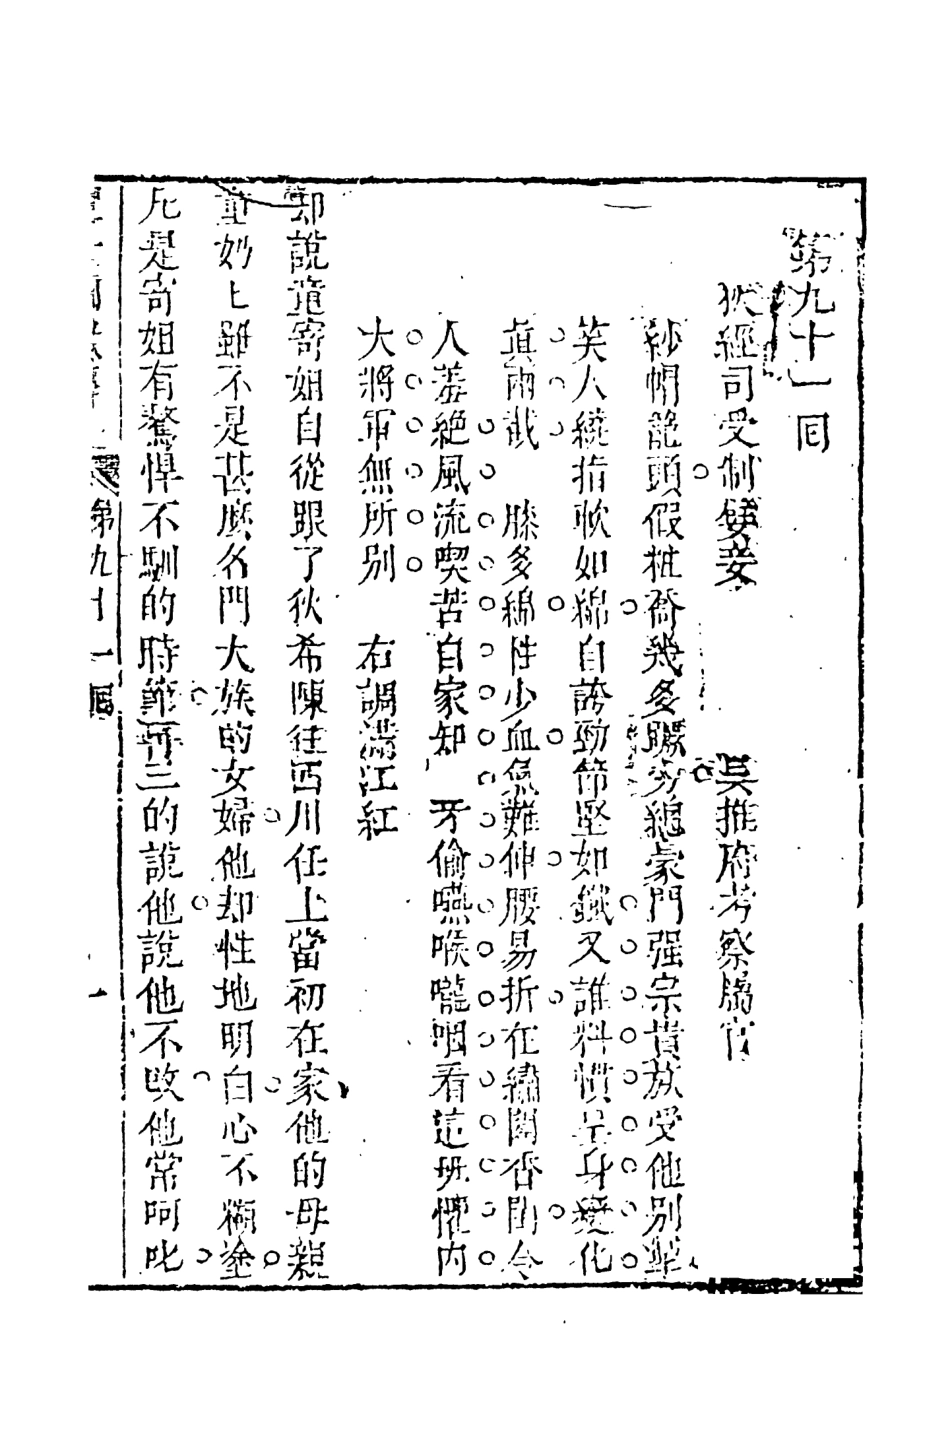 第九十一回
狄經司受制嬖妾　吳推府考察屬官
紗帽籠頭假粧喬幾多豪門强宗貴族受他別
笑人繞指軟如綿自誇勁節堅如鐵又誰料慣呈身變化
眞兩截　膝多綿性少血氣難伸腰易折在繡閣香閨令
人羞絶風流喫苦自家知　牙偷嚥喉嚨咽看這班懼内
大將軍無所別　右調滿江紅
却說童寄姐自從跟了狄希陳往西川任上當初在家他的母親
童奶上雖不是甚麽名門大族的女婦他却性地明白心不糊塗
凡是寄姐有驁悍不馴的時節再三的說他說他不改他常呵叱
第九十一回
一